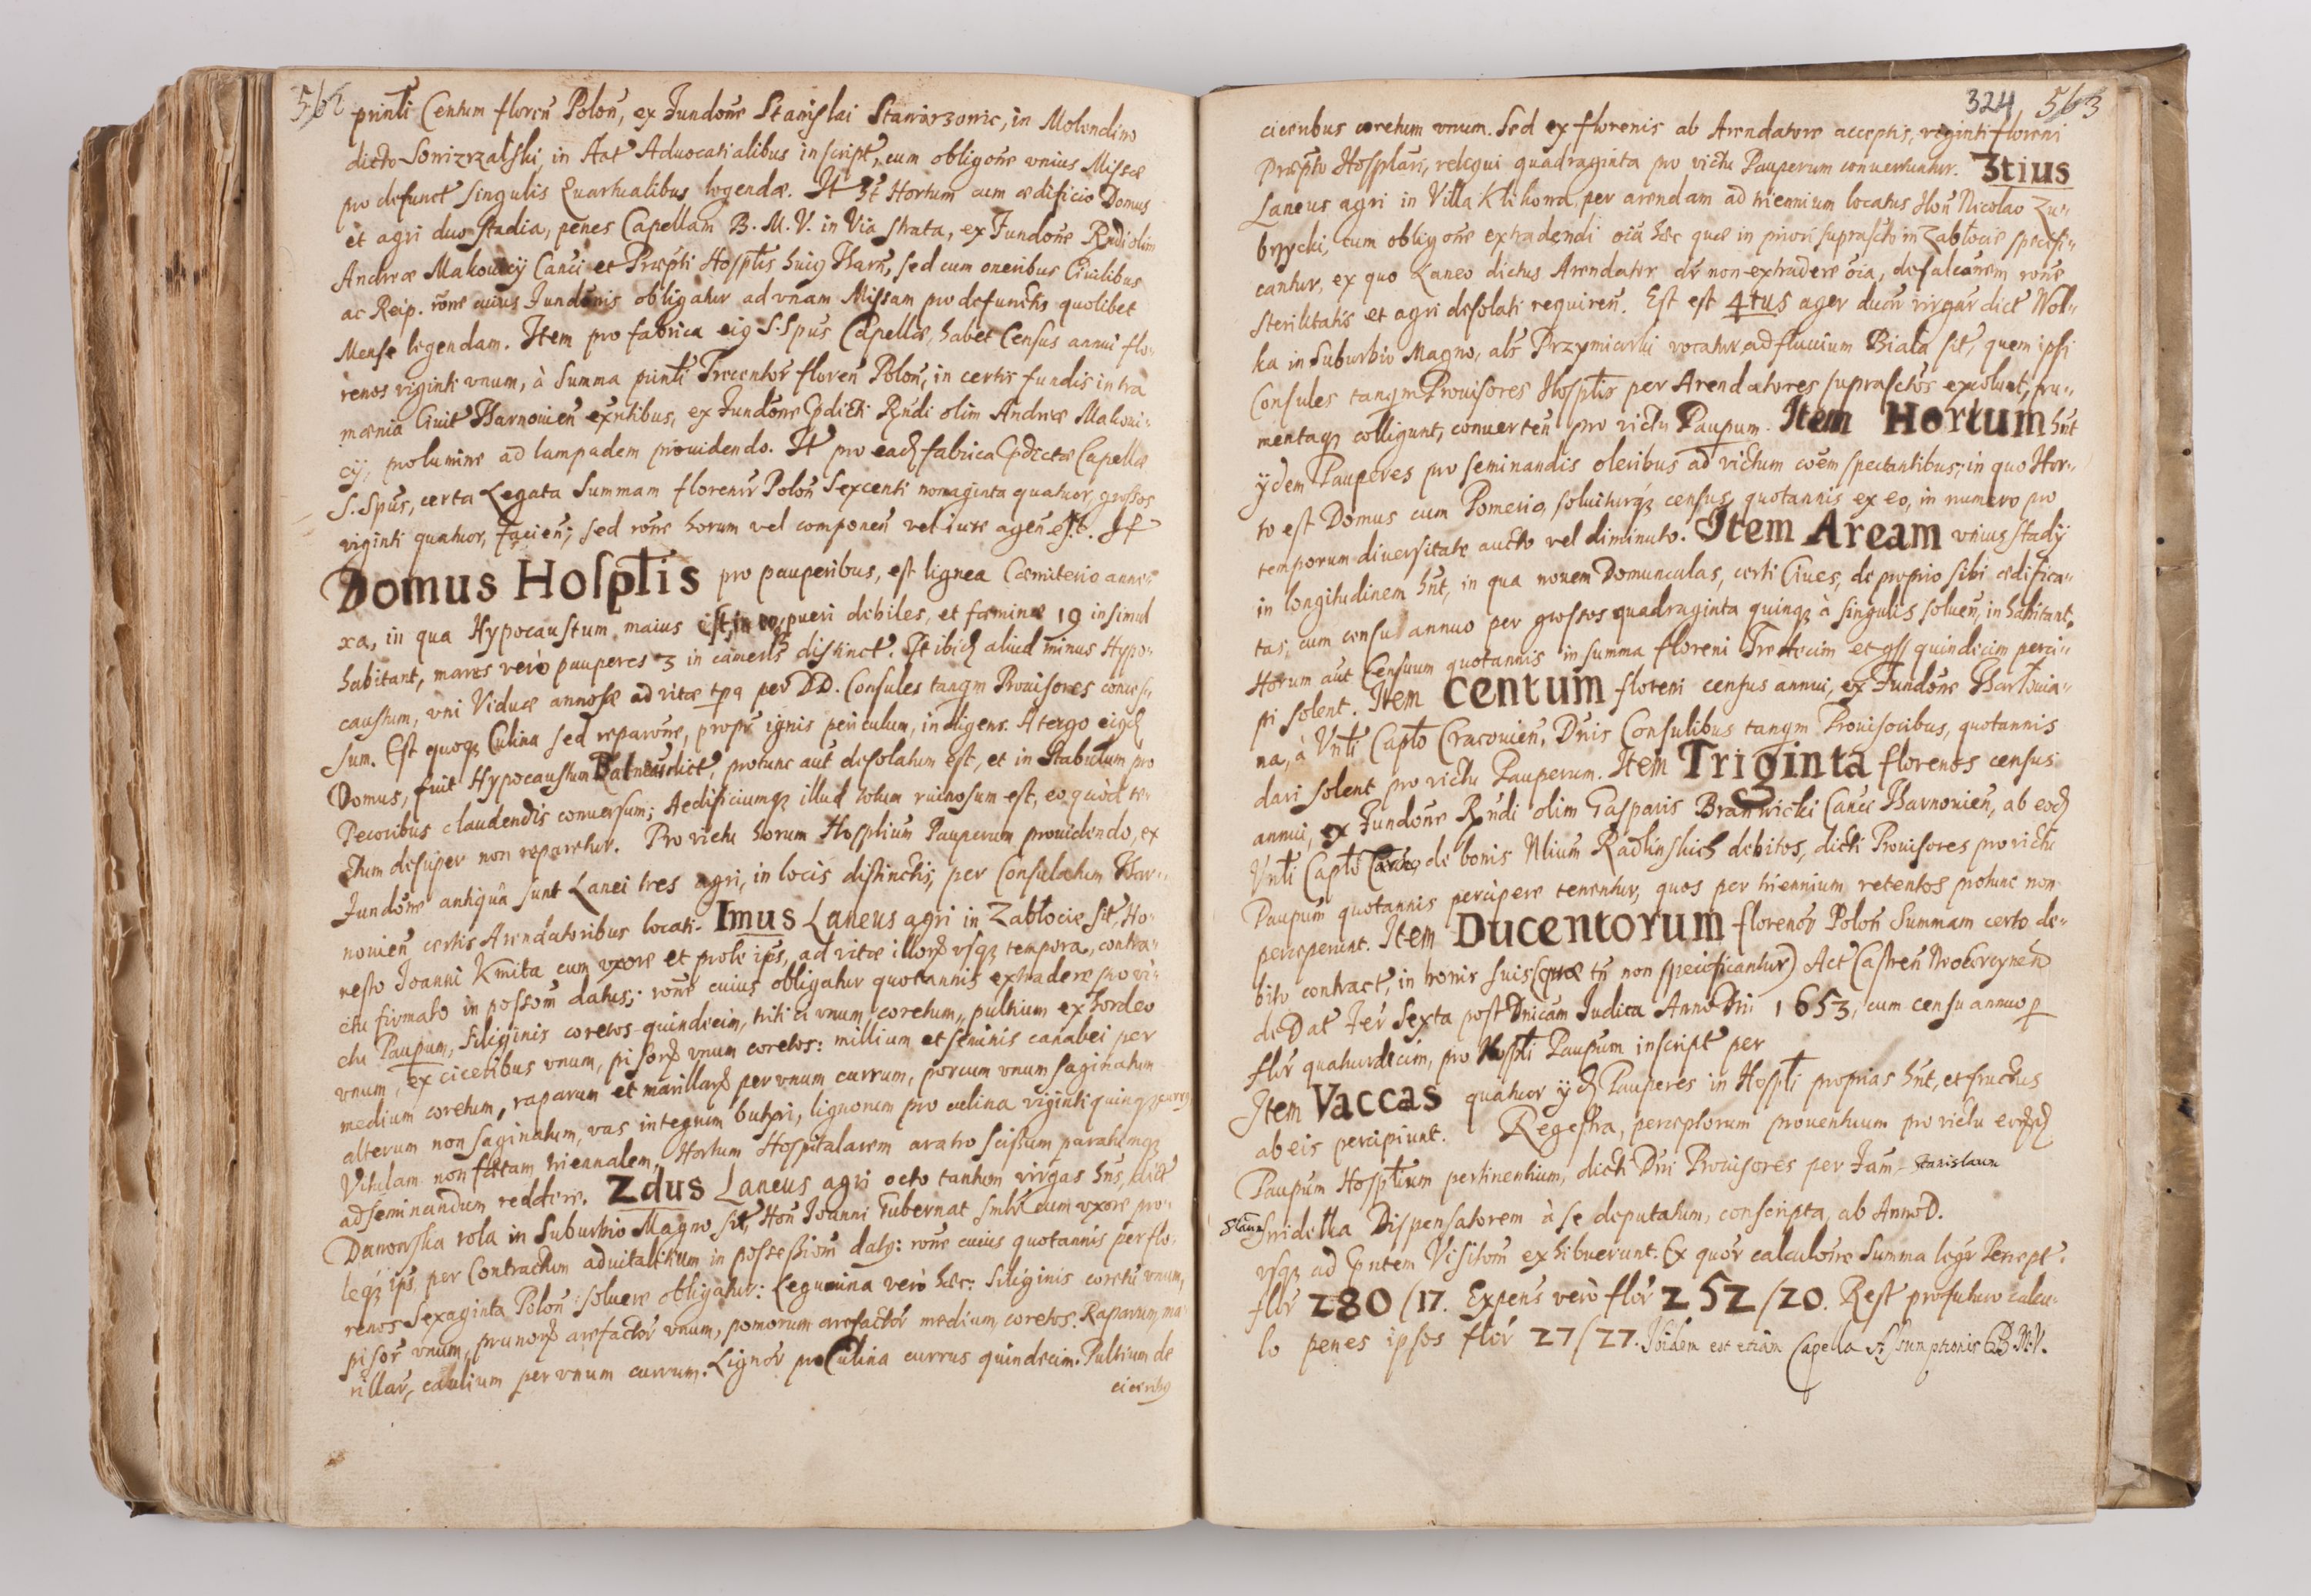 562
printi Centum floren Polon, ex Fundone Stanislai Stawarzowic, in Molendino
dicto Sowizrzalski, in Act Aduocatialibus inscript, cum obligone vnius Missæ
pro defunct singulis Quartualibus legendæ. It ht Hortum cum ædificio Domus
et agri duo stadia, penes Capellam B. M. V. in Via strata, ex Fundone Rndi olim
Andreæ Makowicij Canci et Præpti Hosptis huig Tharn, sed cum oneribus Ciuilibus
ac Reip. rone cuius Fundonis obligatur ad vnam Missam pro defunctis quolibet
Mense legendam. Item pro fabrica eig S. Spus Capellæ, habet Census annui flo-
renos viginti vnum, à Summa printi Trecentor floren Polon, in certis fundis intra
mænia Ciuit Tharnouien exntibus, ex Fundone Prdicti Rndi olim Andreæ Makoui-
cij, pro lumine ad lampadem prouidendo. It pro eadq fabrica Pdictæ Capellæ
S. Spus, certa Legata Summam florenor Polon Sexcenti nonaginta quatuor, grossos
viginti quatuor, facien; sed rone horum vel componen vel iure agen est. It
Domus Hosptis pro pauperibus, est lignea Cæmiterio anne-
xa, in qua Hypocaustum maius est, in eo pueri debiles, et fœminæ 19 insimul
habitant, mares verò pauperes 3 in cameris distinct. Est ibid aliud minus Hypo-
caustum, vni Viduæ annosæ ad vitæ tpa per DD. Consules tanqm Prouisores conces-
sum. Est quoq Culina sed reparone, propr ignis periculum, indigens. A tergo eigd
Domus, fuit Hypocaustum Balneu dict, protunc aut desolatum est, et in Stabulum pro
Pecoribus claudendis conuersum; Aedificiumq illud totum ruinosum est, eo quòd te-
ctum desuper non reparetur. Pro victu horum Hosplium Pauperum prouidendo, ex
Fundone antiqua sunt Lanei tres agri, in locis distinctis, per Consulatum Thar-
nouien certis Arendatoribus locati. Imus Laneus agri in Zabłocie sit, Ho-
nesto Ioanni Kmita cum vxore et prole ips, ad vitæ illorq vsq tempora, contra-
ctu firmato in possom datus; rone cuius obligatur quotannis extradere pro vi-
ctu Paupum, siliginis coretos quindecim, tritici vnum coretum, pultium ex hordeo
vnum, ex ciceribus vnum, pisorq vnum coretos: millium et seminis canabei per
medium coretum, raparum et marillarq per vnum currum, porcum vnum saginatum
alterum non saginatum, vas integrum butyri, lignorum pro culina viginti quinq currq
Vitulam non fœtam triennalem, Hortum Hospitalarem aratro scissum paratumq
ad seminandum reddere. 2dus Laneus agri octo tantum virgas hns, dict
Danowska rola in Suburbio Magno sit, Hon Ioanni Gubernat smlr cum vxore pro-
leq ips per Contractum aduitalitium in possessiom datq: rone cuius quotannis per flo-
renos Sexaginta Polon soluere obligatur: Legumina verò hæc: Siliginis coretu vnum,
pisor vnum, prunorq arefactor vnum, pomorum arefactor medium coretos. Raparum, ma-
rillar, caulium per vnum currum. Lignor pro Culina currus quindecim. Pultium de
ciceribq
324 563
ciceribus coretum vnum. Sed ex florenis ab Arendatore acceptis, viginti floreni
Præpto Hosplari, reliqui quadraginta pro victu Pauperum conuertuntur. 3tius
Laneus agri in Villa Klikowa, per arendam ad triennium locatus Hon Nicolao Zu-
brzycki, cum obligone extradendi oia hæc quæ in priori suprascto in Zabłocie specifi-
cantur, ex quo Laneo dictus Arendator dr non extradere oia, defalcanem rone
sterilitatis et agri desolati requiren. Est est 4tus ager ducar virgar dict Wol-
ka in Suburbio Magno, als Przymiarki vocatur, ad fluuium Biała sit, quem ipsi
Consules tanqm Prouisores Hosptis per Arendatores suprasctos excolunt, fru-
mentaq colligunt, conuerten pro victu Paupum. Item Hortum hnt
ijdem Pauperes pro seminandis oleribus ad victum coem spectantibus, in quo Hor-
to est Domus cum Pomerio, soluiturq census quotannis ex eo, in numero pro
temporum diuersitate aucto vel diminuto. Item Aream vnius stadij
in longitudinem hnt, in qua nouem Domunculas, certi Ciues, de proprio sibi ædifica-
tas, cum censu annuo per grossos quadraginta quinq à singulis soluen, inhabitant.
Horum aut Censuum quotannis in summa floreni Tredecim et gss quindecim perci-
pi solent. Item Centum floreni census annui, ex Fundone Tharlouia-
na, à Vnli Caplo Cracouien, Dnis Consulibus tanqm Prouisoribus, quotannis
dari solent pro victu Pauperum. Item Triginta florenos census
annui, ex Fundone Rndi olim Gasparis Branwicki Canci Tharnouien, ab eodq
Vnli Caplo Craco, de bonis Nlium Radlinskich debitos, dicti Prouisores pro victu
Paupum quotannis percipere tenentur, quos per triennium retentos protunc non
perceperunt. Item Ducentorum florenor Polon Summam certo de-
bito contract, in bonis suis (quæ tn non specificantur) Act Castren Neocorcynen
de Dat Fer Sexta post Dnicam Iudica Anno Dni 1653, cum censu annuo p
flor quatuordecim, pro Hospli Paupum inscript per
Item Vaccas quatuor ijdq Pauperes in Hospli proprias hnt, et fructus
ab eis percipiunt. Regestra, perceptorum prouentuum pro victu eorqdq
Paupum Hosplium pertinentium, dicti Dni Prouisores per Fam. Stanislaum
Slaum Snidelka Dispensatorem à se deputatum, conscripta, ab Anno D.
vsq ad Pntem Visitom exhibuerunt. Ex quor calculone Summa legr Percept.
flor 280/17. Expens verò flor 252/20. Rest pro futuro calcu-
lo penes ipsos flor 27/27. Ibidem est etiam Capella Assumptionis B.M.V.